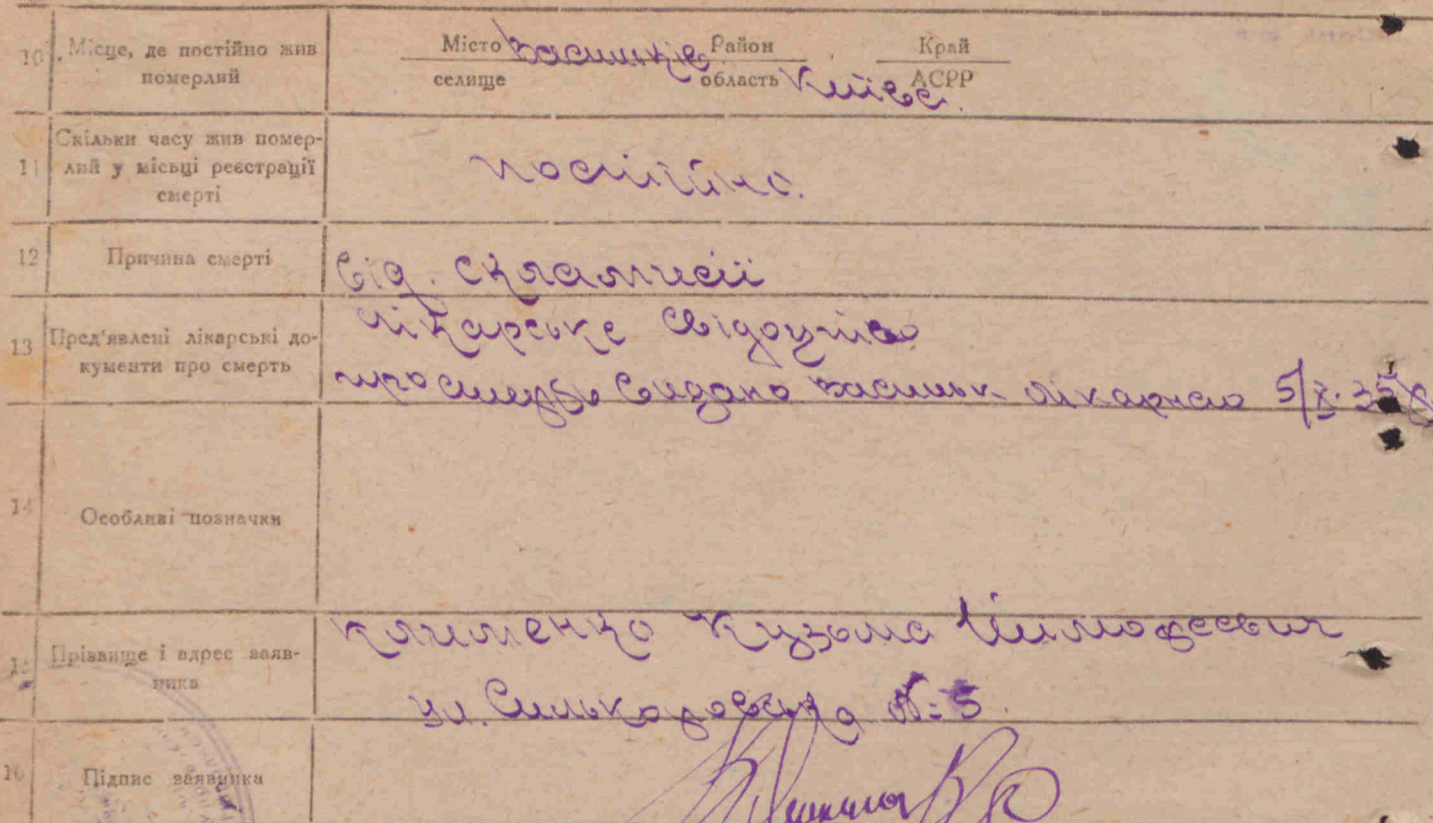 10. Місце, де постійно жив померлий
Місто Васильків Район Край
селище область Київс. АСРР
11 Скільки часу жив помер-
лий у місьці реєстрації
смерті
постійно.
12 Причина смерті
від. єклампсії
13 Пред'явлені лікарські до-
кументи про смерть
лікарське свідоцтво
про смерть видано васильк. лікарнею 5/X.
14 Особливі позначки
15 Прізвище і адрес заяв-
ника
Клименко Кузьма Тимофеевич
ул. №-5.
16 Підпис заявника